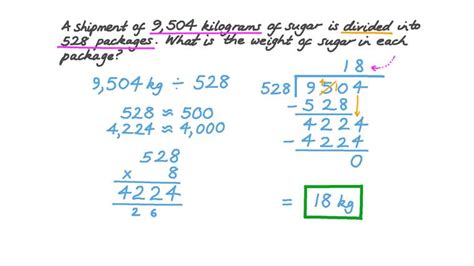 A shipment of 9,504 kilograms of sugar is divided into
528 packages. What is the weight of sugar in each
package?
9,504 kg ÷ 528
528 ≈ 500
4,224 ≈ 4,000
528
× 8
4224
2 6
18
528 9504
- 528
4224
- 4224
0
= 18 kg